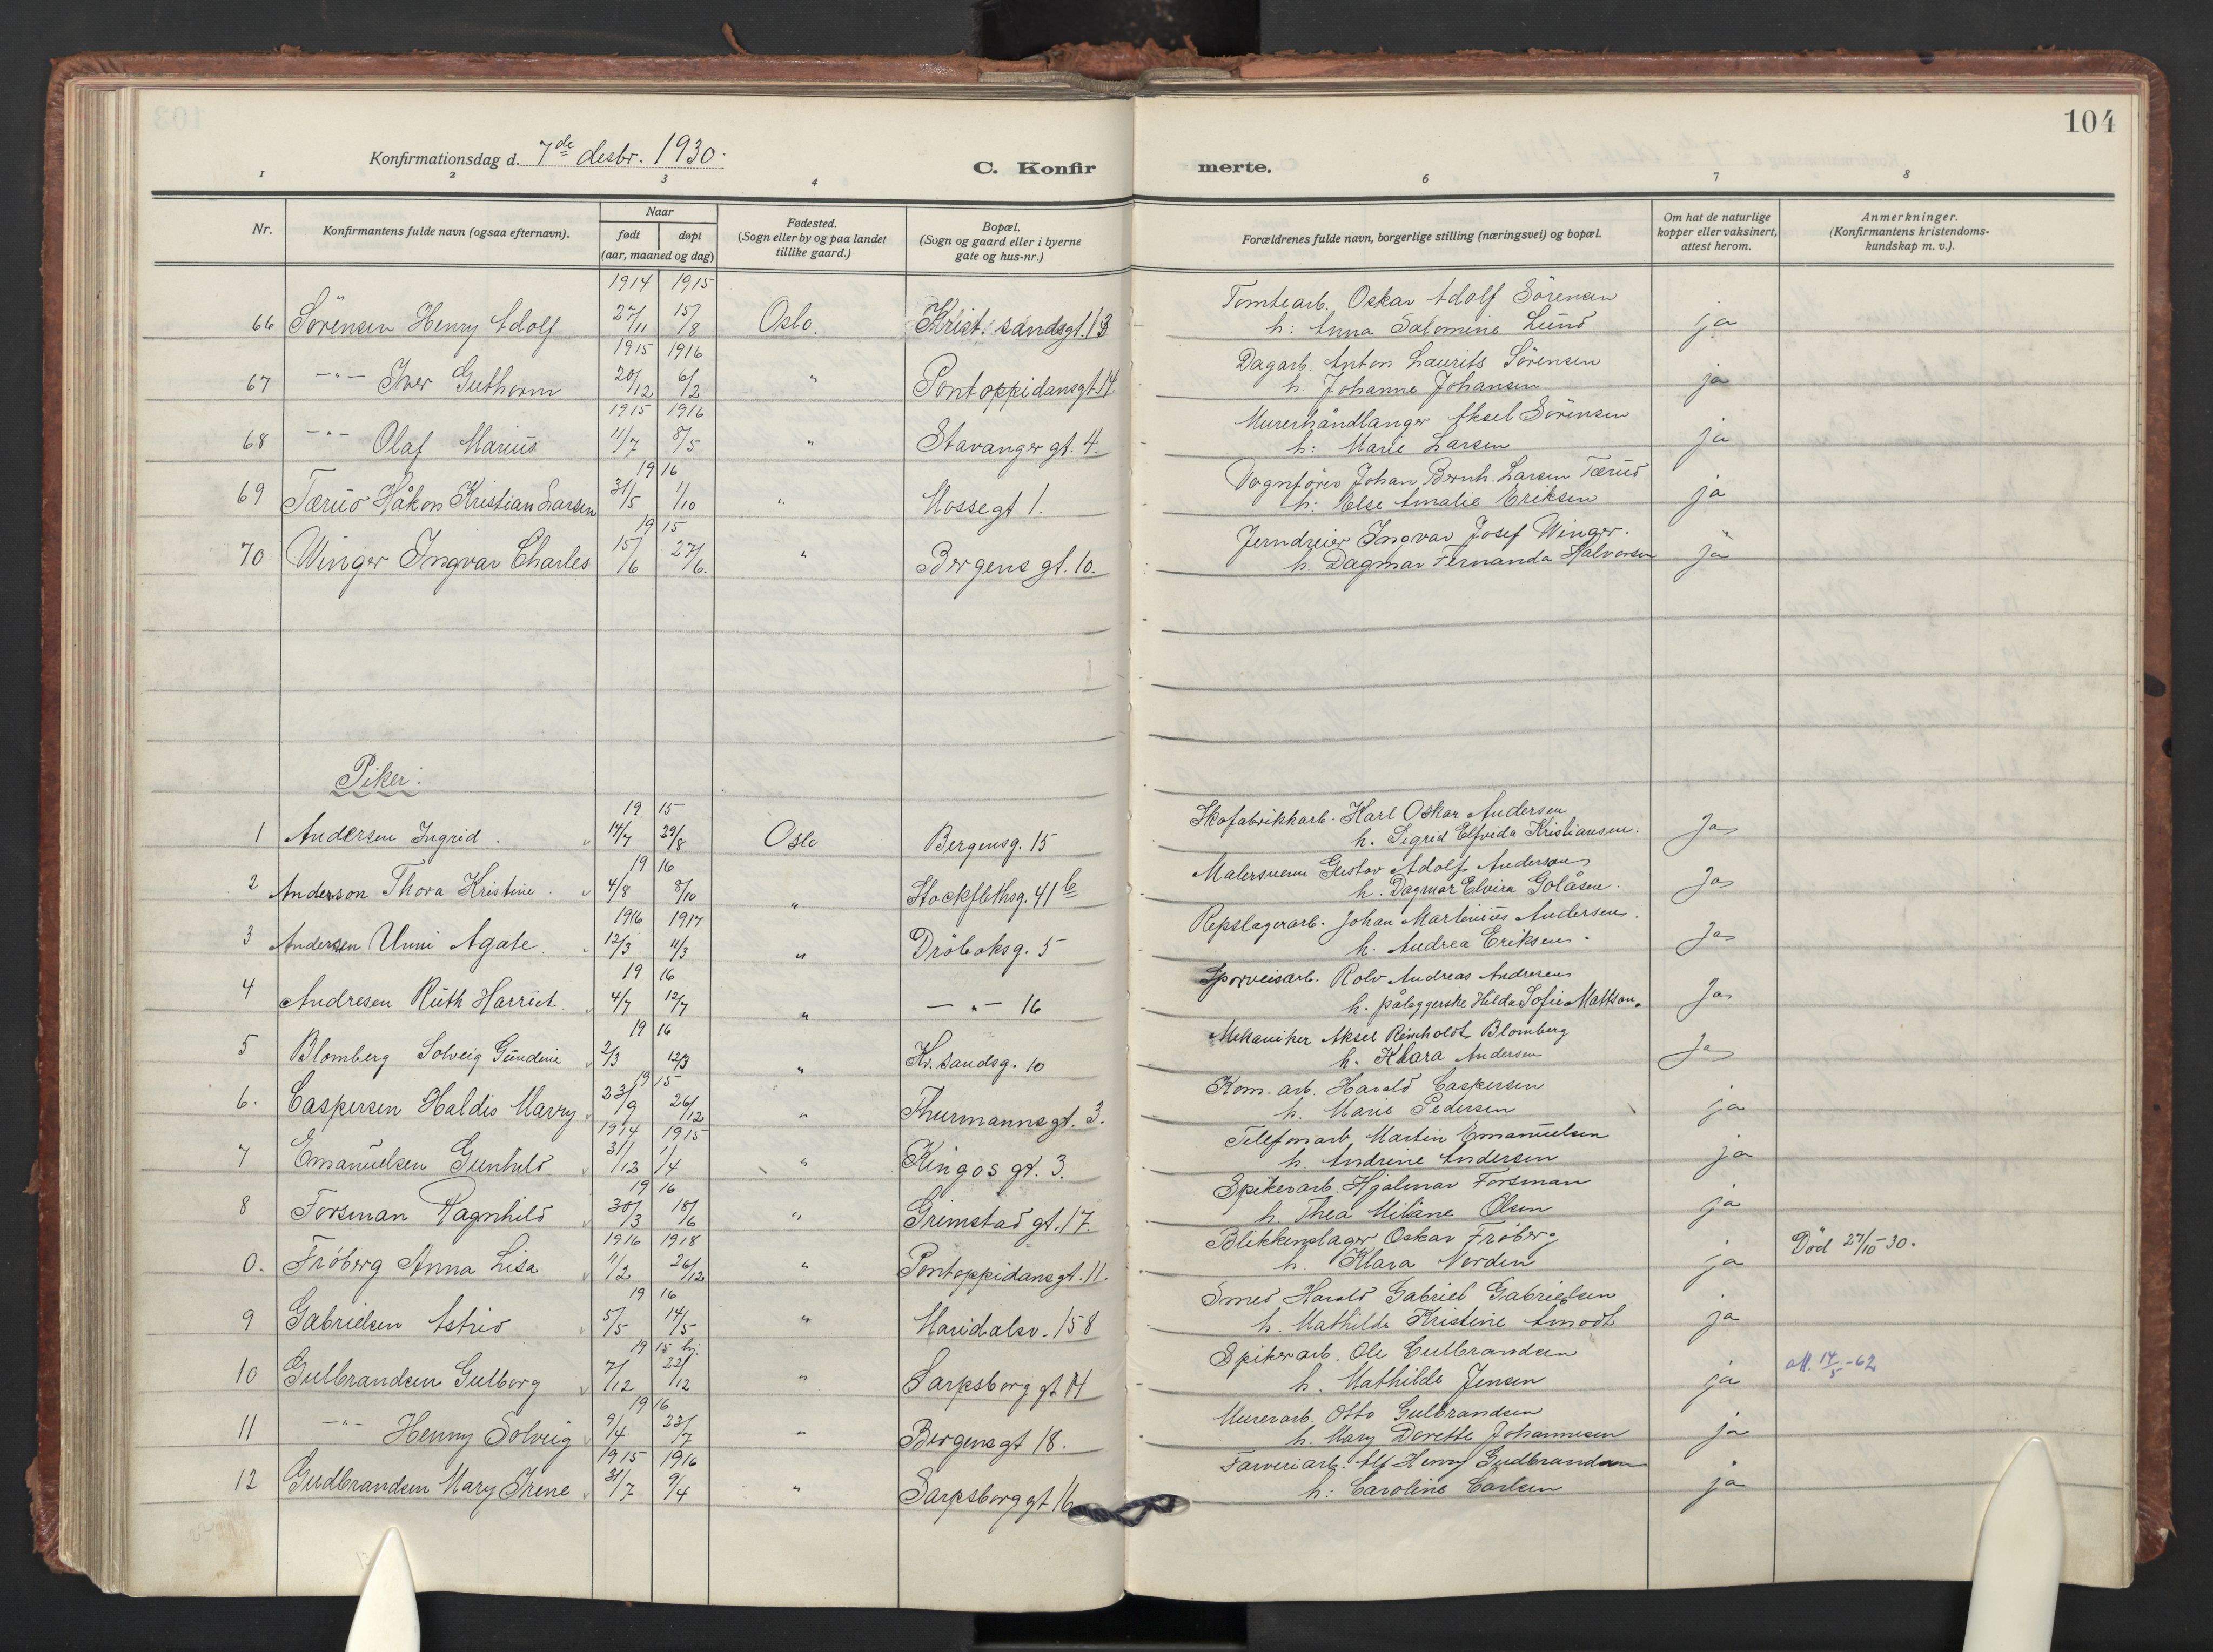 104
Konfirmationsdag d. 7de desbr. 1930.
C. Konfir merte.
1 2 3 4 6 7 8
Nr. Konfirmantens fulde navn (ogsaa efternavn). Naar født døpt (aar, maaned og dag) Fødested. (Sogn eller by og paa landet tillike gaard.) Bopæl. (Sogn og gaard eller i byerne gate og hus-nr.) Forældrenes fulde navn, borgerlige stilling (næringsvei) og bopæl. Om hat de naturlige kopper eller vaksinert, attest herom. Anmerkninger. (Konfirmantens kristendomskundskap m. v.).
1914 1915 Tomtearb. Oskar Adolf Sörensen
66 Sörensen Henry Adolf 27/11 15/8 Oslo. Krist. sandsgt. 13 h: Anna Salomine Lund ja
1915 1916 Dagarb. Anton Laurits Sörensen
67 —"— Iver Guthorm 20/12 6/2 " Pontoppidansgt 14 h. Johanne Johansen ja
1915 1916 Murerhåndlanger Aksel Sörensen
68 —"— Olaf Marius 11/7 8/5 " Stavanger gt. 4. h: Marie Larsen ja
1916 Vognförer Johan Bernh. Larsen Tærud
69 Tærud Håkon Kristian Larsen 31/5 1/10 " Mossegt 1. h: Else Amalie Eriksen ja
1915 Jerndreier Ingvar Josef Winger.
70 Winger Ingvar Charles 15/6 27/6. " Bergens gt. 10. h. Dagmar Fernanda Halvorsen ja
Piker:
1915 Skofabrikkarb. Karl Oskar Andersen
1 Andersen Ingrid. 14/7 29/8 Oslo Bergensg. 15 h. Sigrid Elfrida Kristiansen. Ja
1916 Malersvenn Gustav Adolf Anderson
2 Anderson Thora Kristine. 4/8 8/10 " Stockflethsg. 41 b h. Dagmar Elvira Golåsen. Ja
1916 1917 Repslagerarb. Johan Martinius Andersen.
3 Andersen Unni Agate. 12/3 11/3 " Dröbaksg. 5 h. Andrea Eriksen. Ja
1916 Sporveisarb. Rolv Andreas Andresen
4 Andresen Ruth Harriet. 4/7 12/7 " —"— 16 h. påleggerske Hilda Sofie Mattson. Ja
1916 Mekaniker Aksel Reinholdt Blomberg
5 Blomberg Solveig Gundine 2/3 12/3 " Kr. sandsg. 10 h. Klara Andersen Ja
1915 Kom. arb. Harald Caspersen
6. Caspersen Haldis Marry 23/9 26/12 " Thurmannsgt. 3. h. Marie Pedersen ja
1914 1915 Telefonarb. Martin Emanuelsen
7 Emanuelsen Gunhild 31/12 1/4 " Kingos gt. 3. h. Andrine Andersen ja
1916 Spikerarb. Hjalmar Forsman
8 Forsman Ragnhild 30/3 18/6 " Grimstad gt. 17. h. Thea Milane Olsen ja
1916 1918 Blikkenslager Oskar Fröberg
0. Fröberg Anna Lisa 11/2 26/12 " Pontoppidansgt. 11. h. Klara Norden ja Död 27/10-30.
1916 Smed Harald Gabriel Gabrielsen
9 Gabrielsen Astrid 5/5 14/5 " Maridalsv. 158 h. Mathilde Kristine Amodt ja
1915 hj. Spikerarb. Ole Gulbrandsen
10 Gulbrandsen Gulborg 7/12 22/12 " Sarpsborg gt 14 h. Mathilde Jensen ja att. 14/5-62
1916 Murerarb. Otto Gulbrandsen
11 —"— Henny Solveig 9/4 23/7 " Bergensgt 18. h. Mary Dorette Johannesen ja
1915 1916 Farveriarb. Alf Henry Gudbrandsen
12 Gudbrandsen Mary Irene 31/7 9/4 " Sarpsborggt 16 h: Caroline Carlsen ja